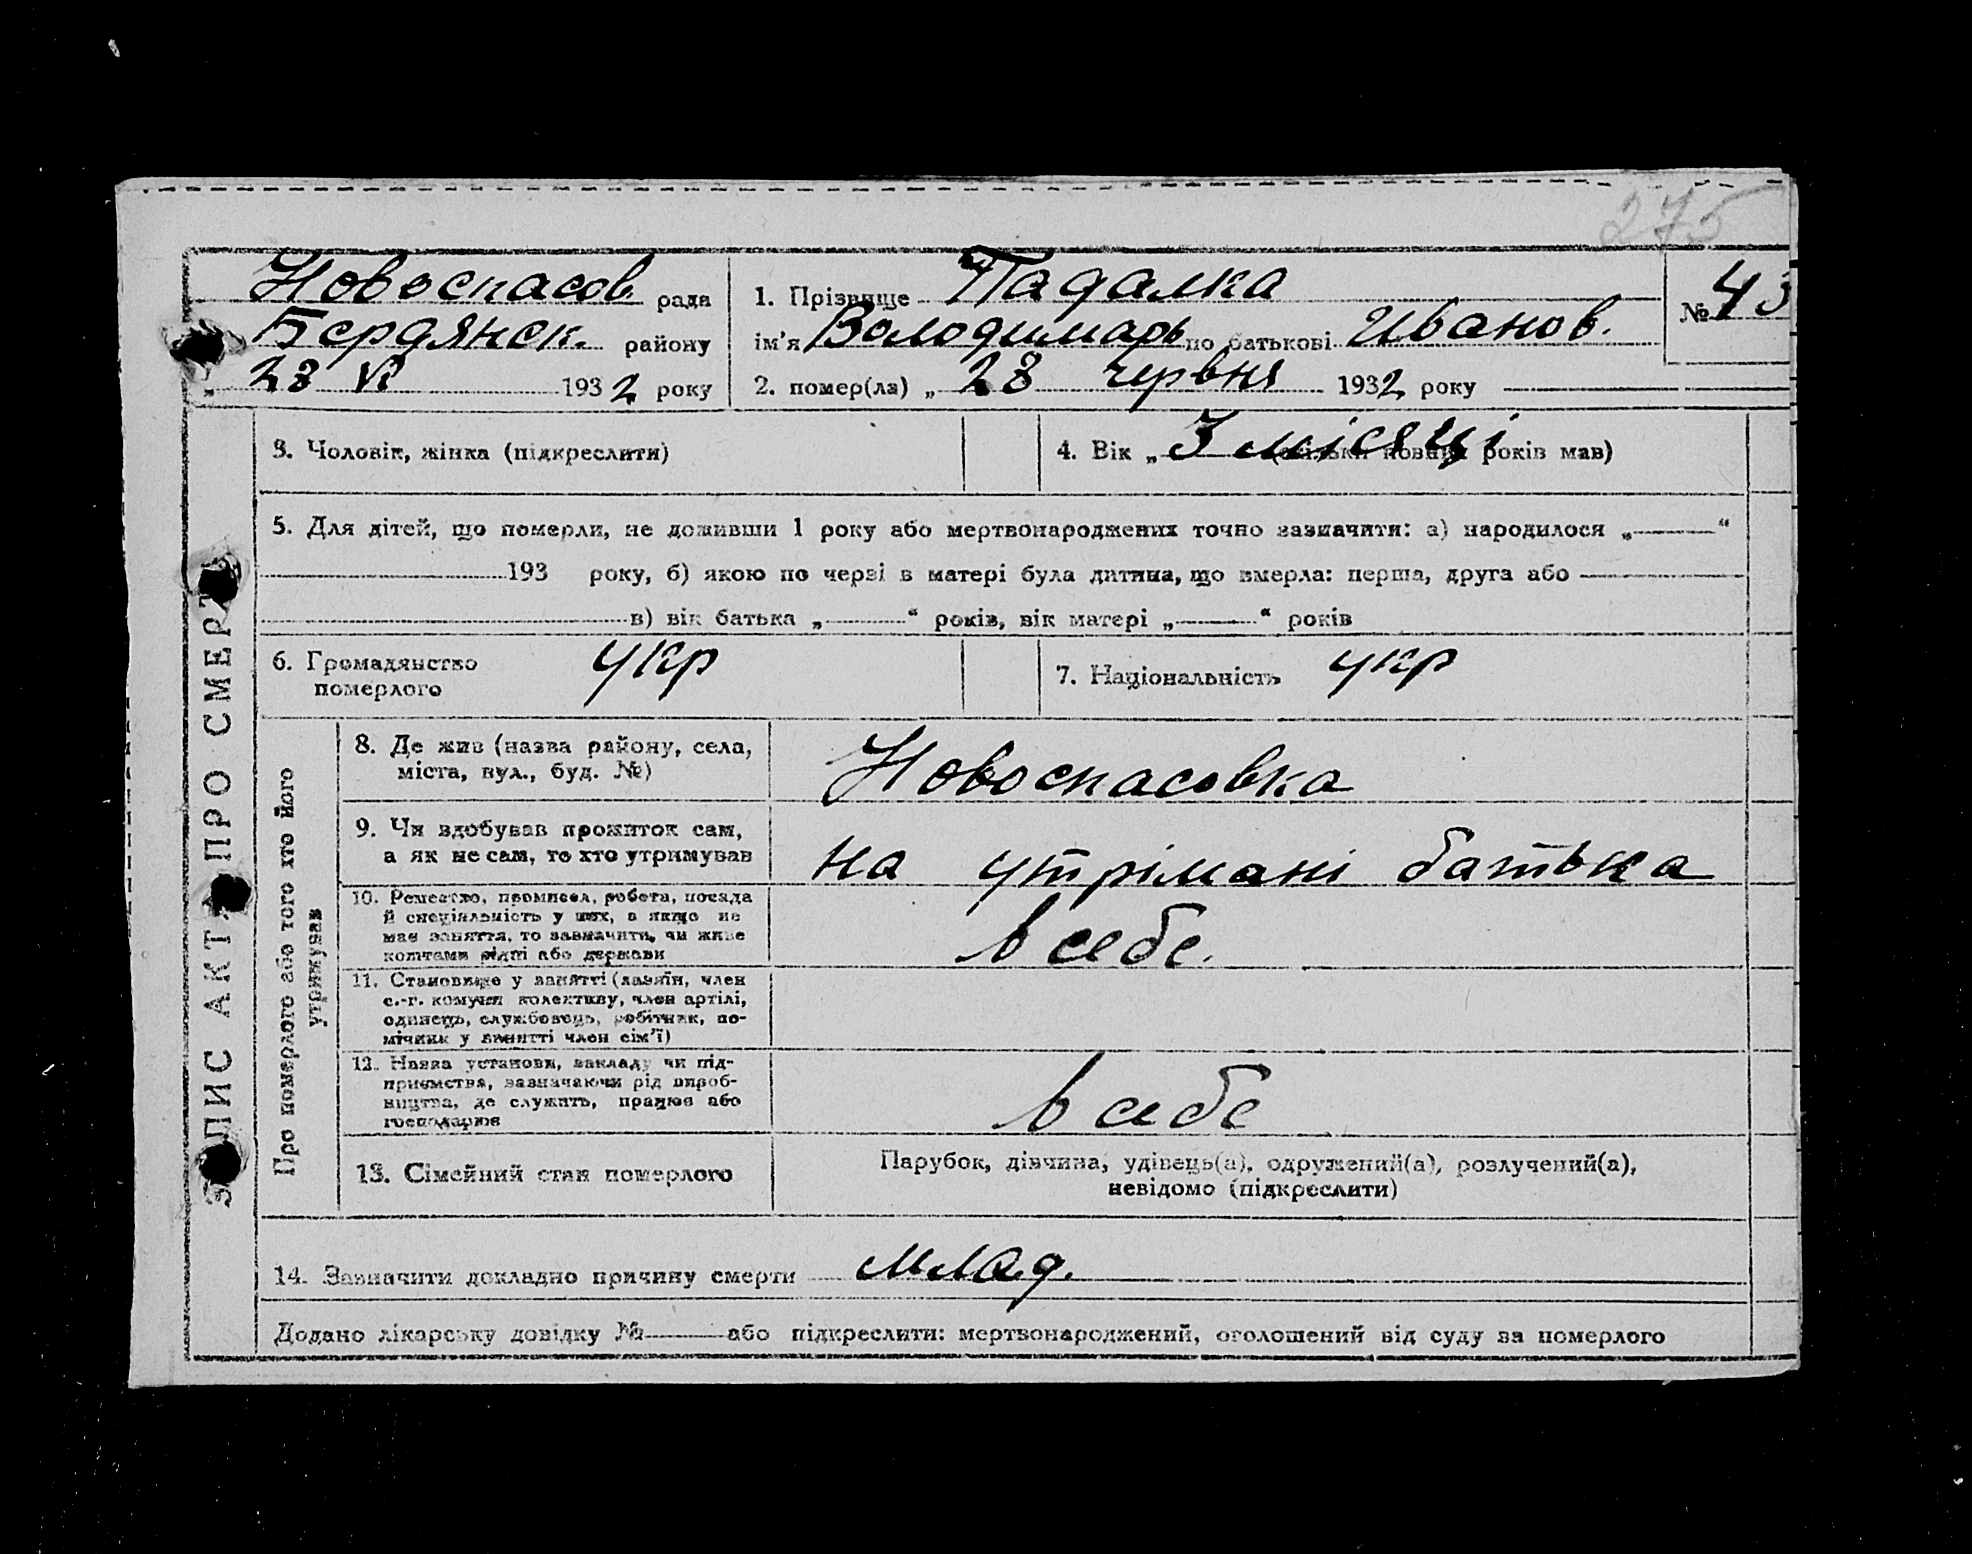 275
Новоспасов. рада
Бердянск. району
„ 28 VI 1932 року
1. Прізвище Падалка
ім'я Володимарь по батькові Иванов.
2. помер(ла) „ 28 червня 1932 року
№ 43
ЗАПИС АКТА ПРО СМЕРТЬ
3. Чоловік, жінка (підкреслити)
4. Вік „ 3 місяці (скільки повних років мав)
5. Для дітей, що померли, не доживши 1 року або мертвонароджених точно зазначити: а) народилося „ “
193 року, б) якою по черзі в матері була дитина, що вмерла: перша, друга або
в) вік батька „ “ років, вік матері „ “ років
6. Громадянство
померлого укр
7. Національність укр
Про померлого або того хто його
утримував
8. Де жив (назва району, села,
міста, вул., буд. №)
Новоспасовка
9. Чи здобував прожиток сам,
а як не сам, то хто утримував
на утрімані батька
10. Ремество, промисел, робота, посада
й спеціяльність у них, а якщо не
має заняття, то зазначити, чи живе
коштами рідні або держави
в себе.
11. Становище у занятті (хазяїн, член
с.-г. комуни колективу, член артілі,
одинець, службовець, робітник, по-
мічник у занятті член сім'ї)
12. Назва установи, закладу чи під-
приємства, зазначаючи рід вироб-
ництва, де служить, працює або
господарює
в себе
13. Сімейний стан померлого
Парубок, дівчина, удівець(а), одружений(а), розлучений(а),
невідомо (підкреслити)
14. Зазначити докладно причину смерти млад.
Додано лікарську довідку № або підкреслити: мертвонароджений, оголошений від суду за померлого